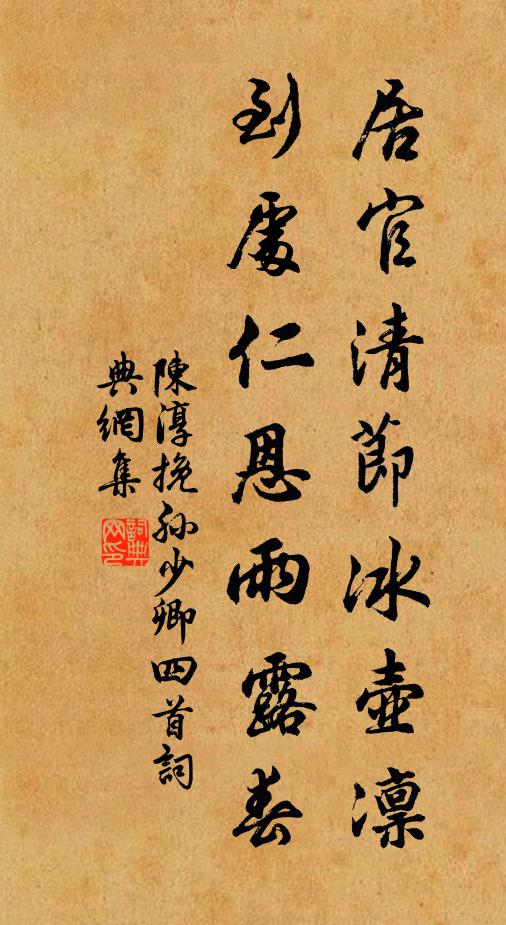 居官清節冰壺凛
到處仁恩雨露春
陳淳挽孙少卿四首詞
典網集
詞典网印